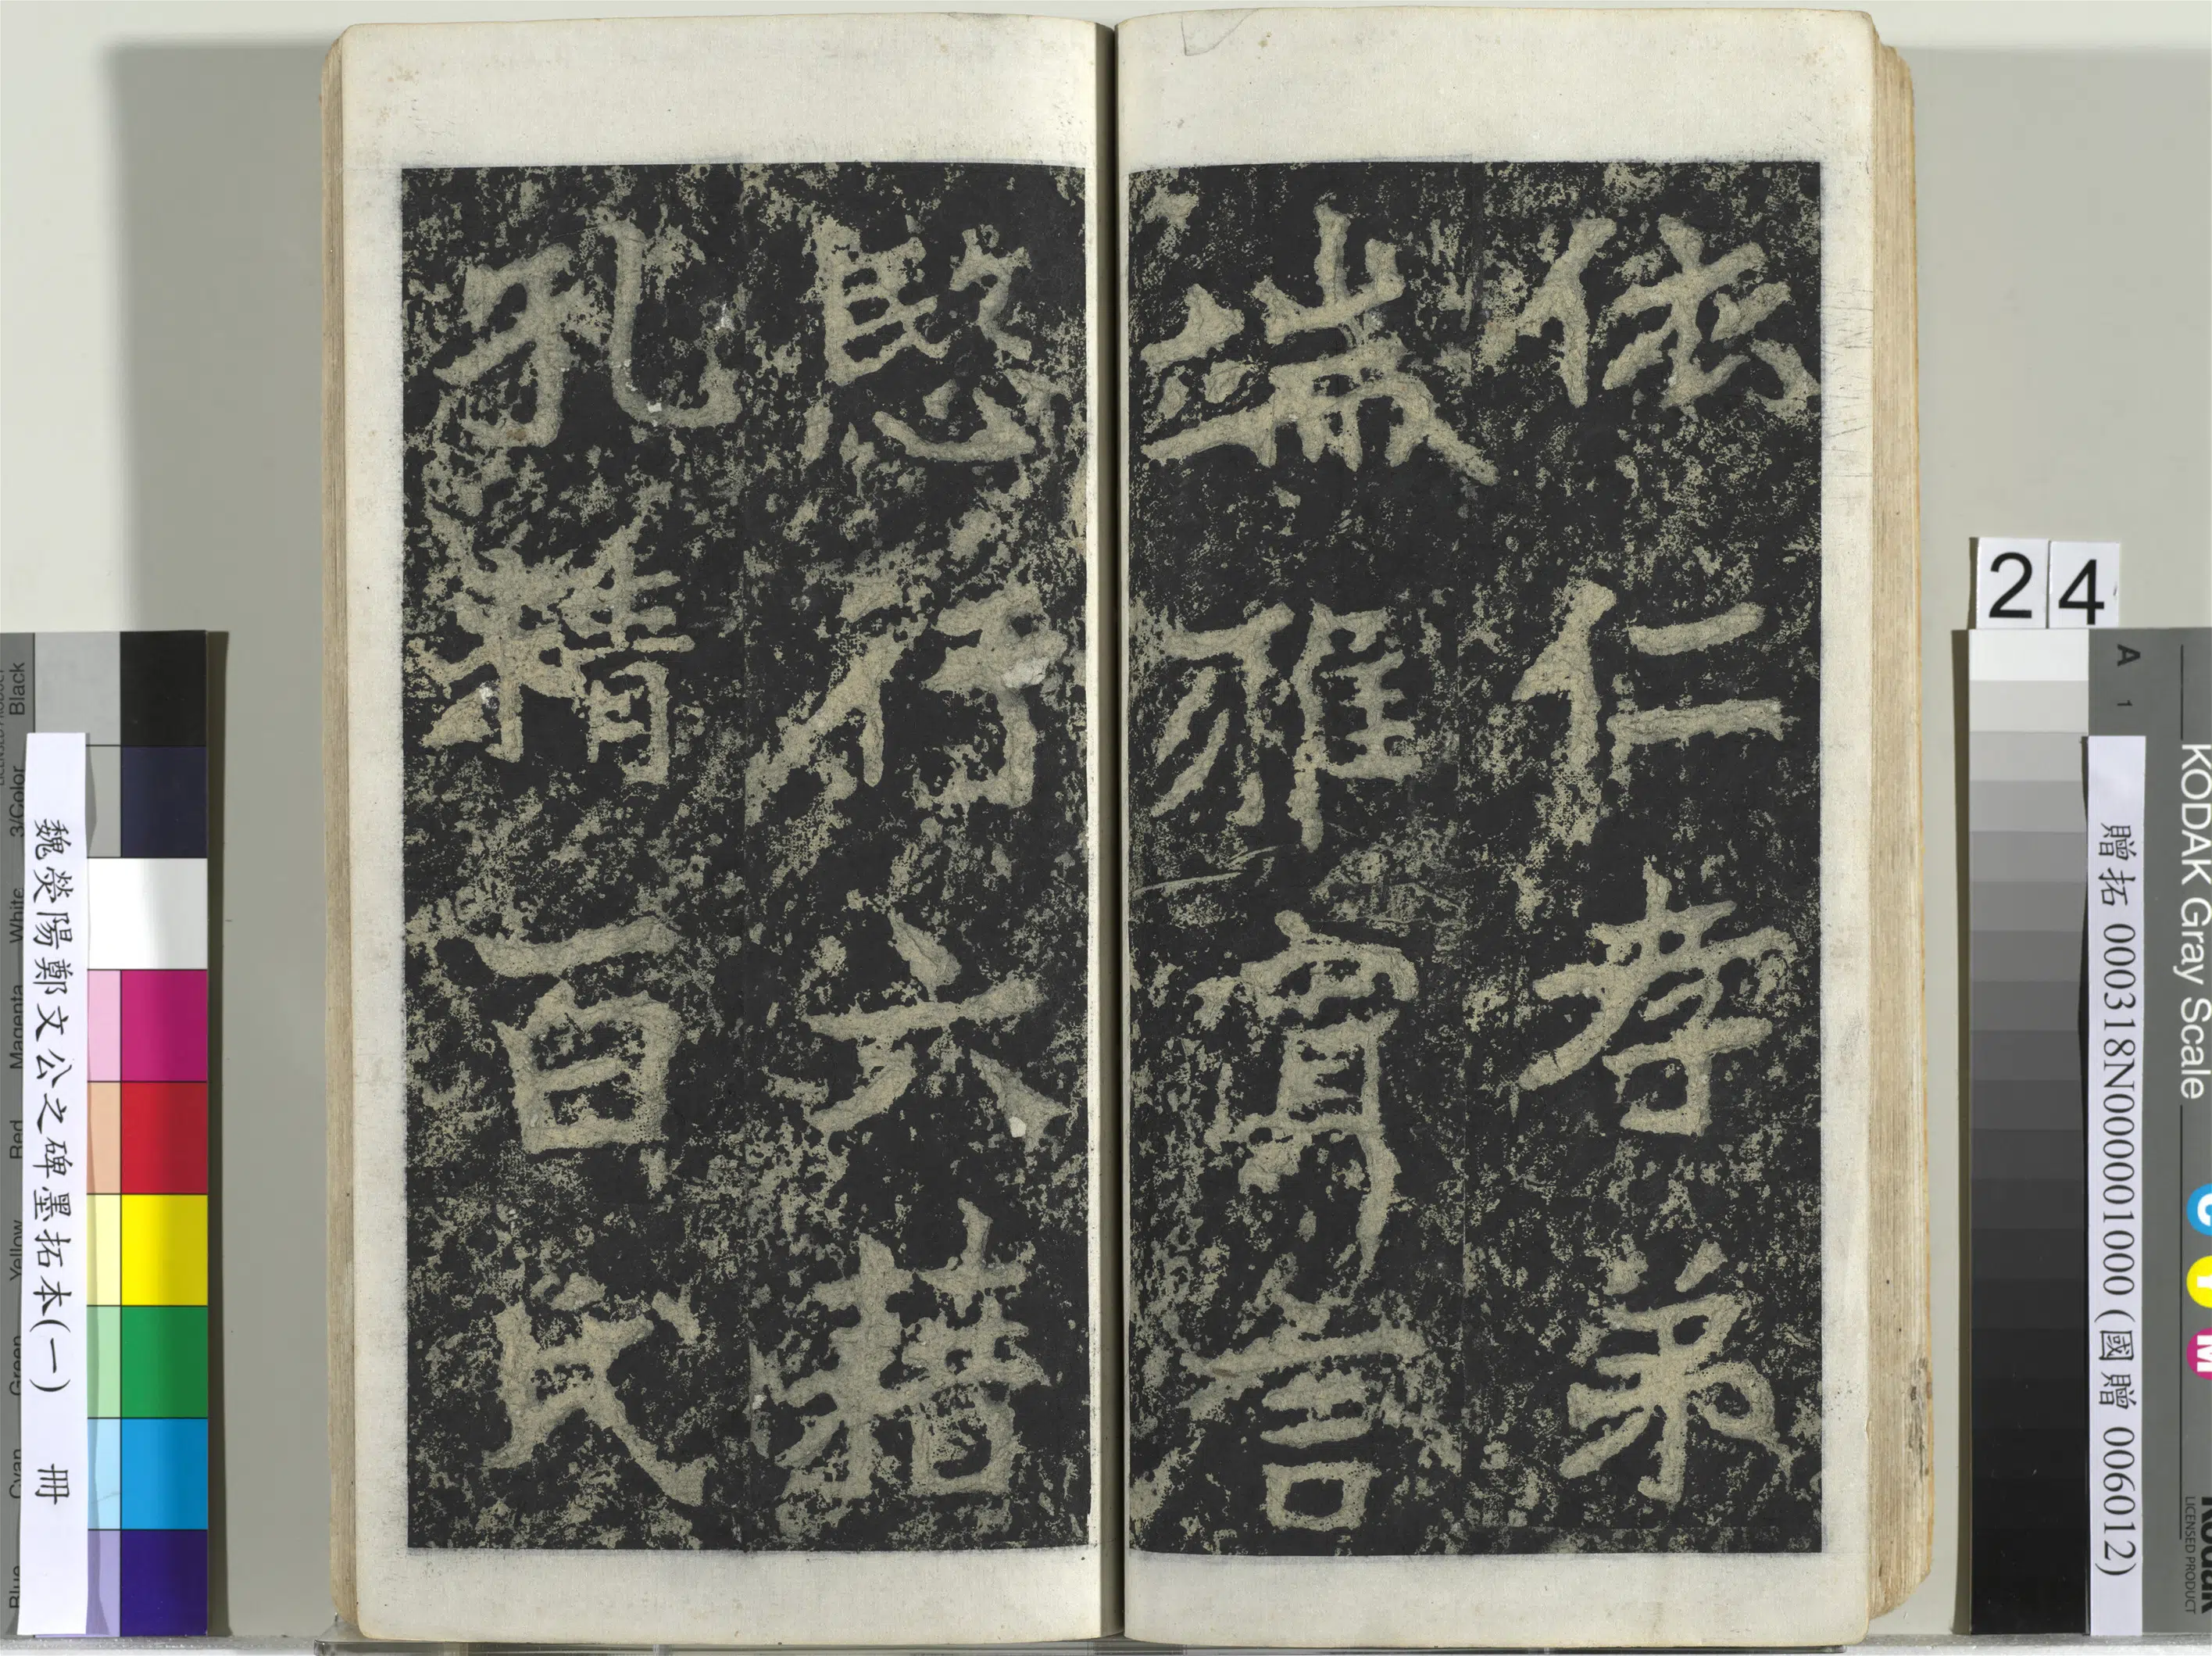 依仁孝弟
端雅寡言
愍行六籍
孔精百氏
魏熒陽鄭文公之碑墨拓本(一) 冊
贈拓 000318N000001000 (國贈 006012)
24
KODAK Gray Scale
A 1
C Y M
Kodak
LICENSED PRODUCT
Blue Cyan Green Yellow Red Magenta White 3/Color Black